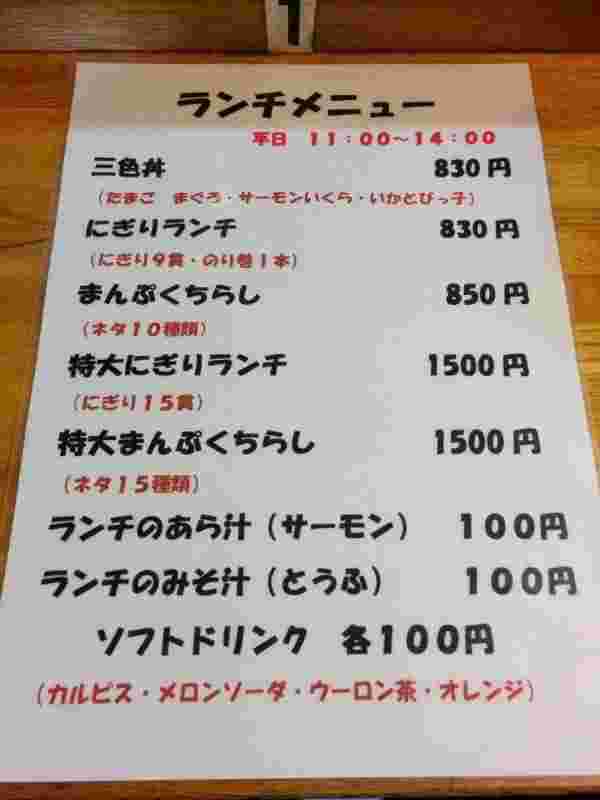 1
ランチメニュー
平日 11:00~14:00
三色丼 830円
(たまご まぐろ・サーモンいくら・いかとびっ子)
にぎりランチ 830円
(にぎり9貫・のり巻1本)
まんぷくちらし 850円
(ネタ10種類)
特大にぎりランチ 1500円
(にぎり15貫)
特大まんぷくちらし 1500円
(ネタ15種類)
ランチのあら汁(サーモン) 100円
ランチのみそ汁(とうふ) 100円
ソフトドリンク 各100円
(カルピス・メロンソーダ・ウーロン茶・オレンジ)